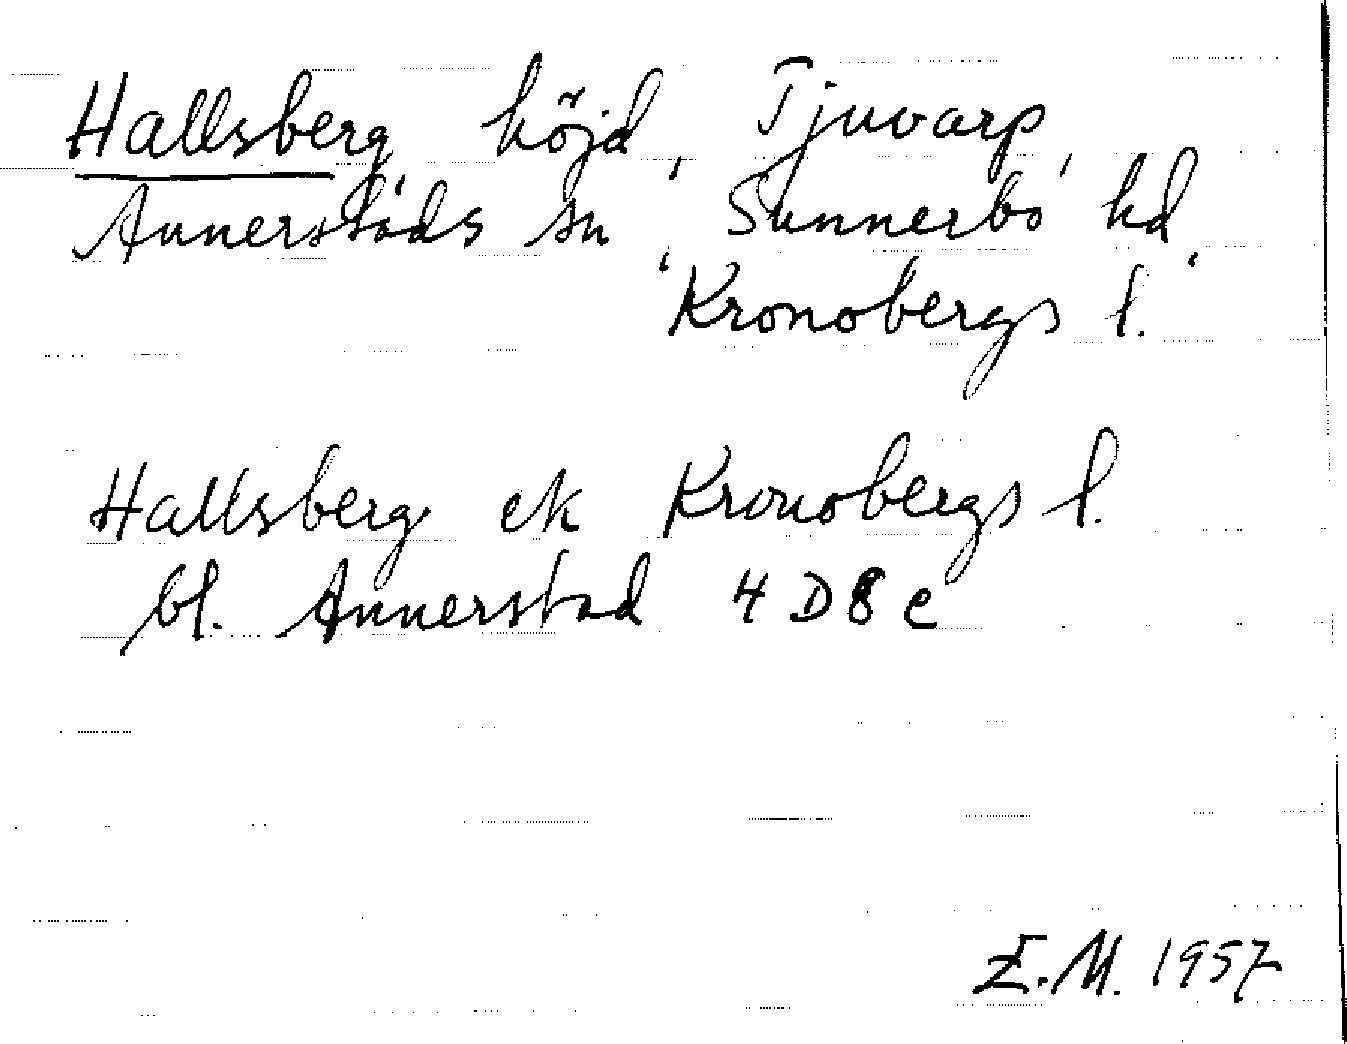 Hallsberg höjd, Tjuvarp,
Annerstads sn, Sunnerbo hd,
Kronobergs l.
Hallsberg ek Kronobergs l.
bl. Annerstad 4 D 8 e
E.M. 1957